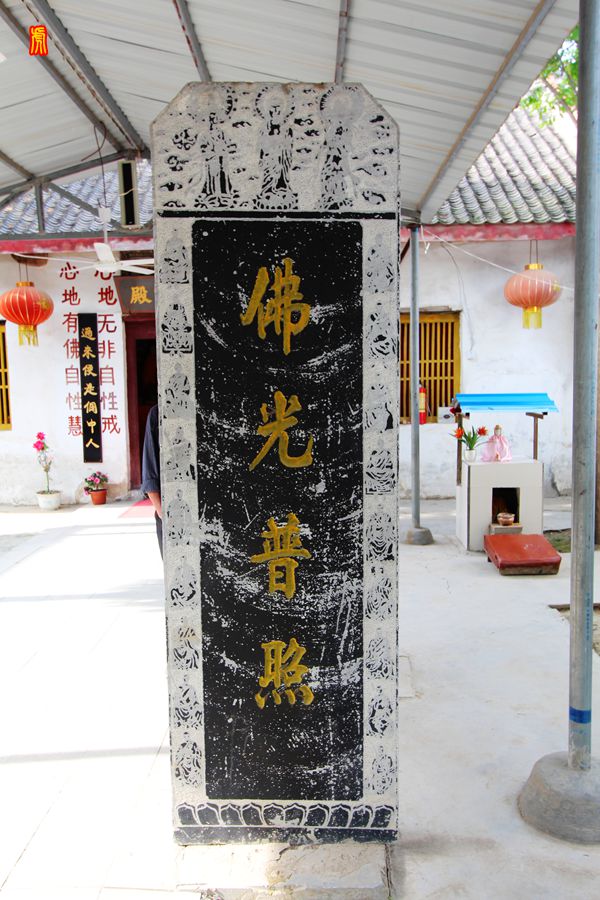 佛光普照
殿
心地无非自性戒
心地有佛自性慧
過來便是個中人